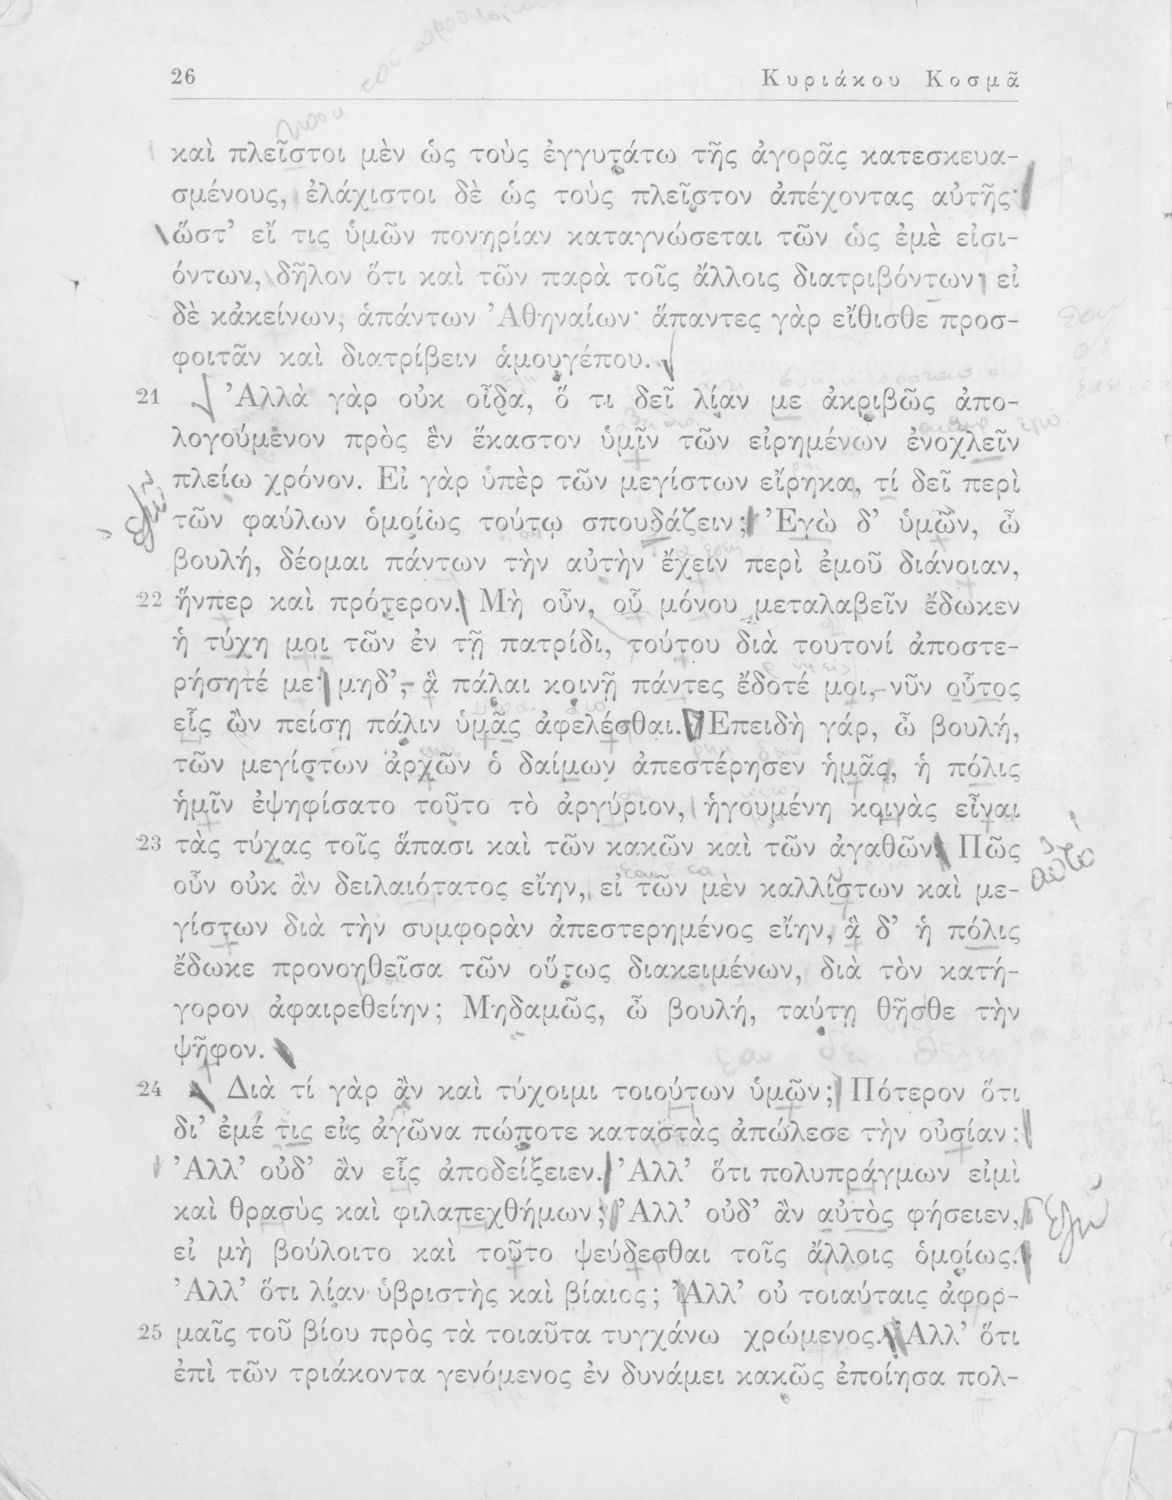 26 Κυριάκου Κοσμᾶ
καὶ πλεῖστοι μὲν ὡς τοὺς ἐγγυτάτω τῆς ἀγορᾶς κατεσκευα-
σμένους, ἐλάχιστοι δὲ ὡς τοὺς πλεῖστον ἀπέχοντας αὐτῆς·
ὥστ’ εἴ τις ὑμῶν πονηρίαν καταγνώσεται τῶν ὡς ἐμὲ εἰσι-
όντων, δῆλον ὅτι καὶ τῶν παρὰ τοῖς ἄλλοις διατριβόντων· εἰ
δὲ κἀκείνων, ἁπάντων Ἀθηναίων· ἅπαντες γὰρ εἴθισθε προσ-
φοιτᾶν καὶ διατρίβειν ἁμουγέπου.
21 Ἀλλὰ γὰρ οὐκ οἶδα, ὅ τι δεῖ λίαν με ἀκριβῶς ἀπο-
λογούμενον πρὸς ἓν ἕκαστον ὑμῖν τῶν εἰρημένων ἐνοχλεῖν
πλείω χρόνον. Εἰ γὰρ ὑπὲρ τῶν μεγίστων εἴρηκα, τί δεῖ περὶ
τῶν φαύλων ὁμοίως τούτῳ σπουδάζειν; Ἐγὼ δ’ ὑμῶν, ὦ
βουλή, δέομαι πάντων τὴν αὐτὴν ἔχειν περὶ ἐμοῦ διάνοιαν,
22 ἥνπερ καὶ πρότερον. Μὴ οὖν, οὗ μόνου μεταλαβεῖν ἔδωκεν
ἡ τύχη μοι τῶν ἐν τῇ πατρίδι, τούτου διὰ τουτονί ἀποστε-
ρήσητέ με· μηδ’, ἃ πάλαι κοινῇ πάντες ἔδοτέ μοι, νῦν οὗτος
εἷς ὢν πείσῃ πάλιν ὑμᾶς ἀφελέσθαι. Ἐπειδὴ γάρ, ὦ βουλή,
τῶν μεγίστων ἀρχῶν ὁ δαίμων ἀπεστέρησεν ἡμᾶς, ἡ πόλις
ἡμῖν ἐψηφίσατο τοῦτο τὸ ἀργύριον, ἡγουμένη κοινὰς εἶναι
23 τὰς τύχας τοῖς ἅπασι καὶ τῶν κακῶν καὶ τῶν ἀγαθῶν. Πῶς
οὖν οὐκ ἂν δειλαιότατος εἴην, εἰ τῶν μὲν καλλίστων καὶ με-
γίστων διὰ τὴν συμφορὰν ἀπεστερημένος εἴην, ἃ δ’ ἡ πόλις
ἔδωκε προνοηθεῖσα τῶν οὕτως διακειμένων, διὰ τὸν κατή-
γορον ἀφαιρεθείην; Μηδαμῶς, ὦ βουλή, ταύτῃ θῆσθε τὴν
ψῆφον.
24 Διὰ τί γὰρ ἂν καὶ τύχοιμι τοιούτων ὑμῶν; Πότερον ὅτι
δι’ ἐμέ τις εἰς ἀγῶνα πώποτε καταστὰς ἀπώλεσε τὴν οὐσίαν;
Ἀλλ’ οὐδ’ ἂν εἷς ἀποδείξειεν. Ἀλλ’ ὅτι πολυπράγμων εἰμὶ
καὶ θρασὺς καὶ φιλαπεχθήμων; Ἀλλ’ οὐδ’ ἂν αὐτὸς φήσειεν,
εἰ μὴ βούλοιτο καὶ τοῦτο ψεύδεσθαι τοῖς ἄλλοις ὁμοίως.
Ἀλλ’ ὅτι λίαν ὑβριστὴς καὶ βίαιος; Ἀλλ’ οὐ τοιαύταις ἀφορ-
25 μαῖς τοῦ βίου πρὸς τὰ τοιαῦτα τυγχάνω χρώμενος. Ἀλλ’ ὅτι
ἐπὶ τῶν τριάκοντα γενόμενος ἐν δυνάμει κακῶς ἐποίησα πολ-